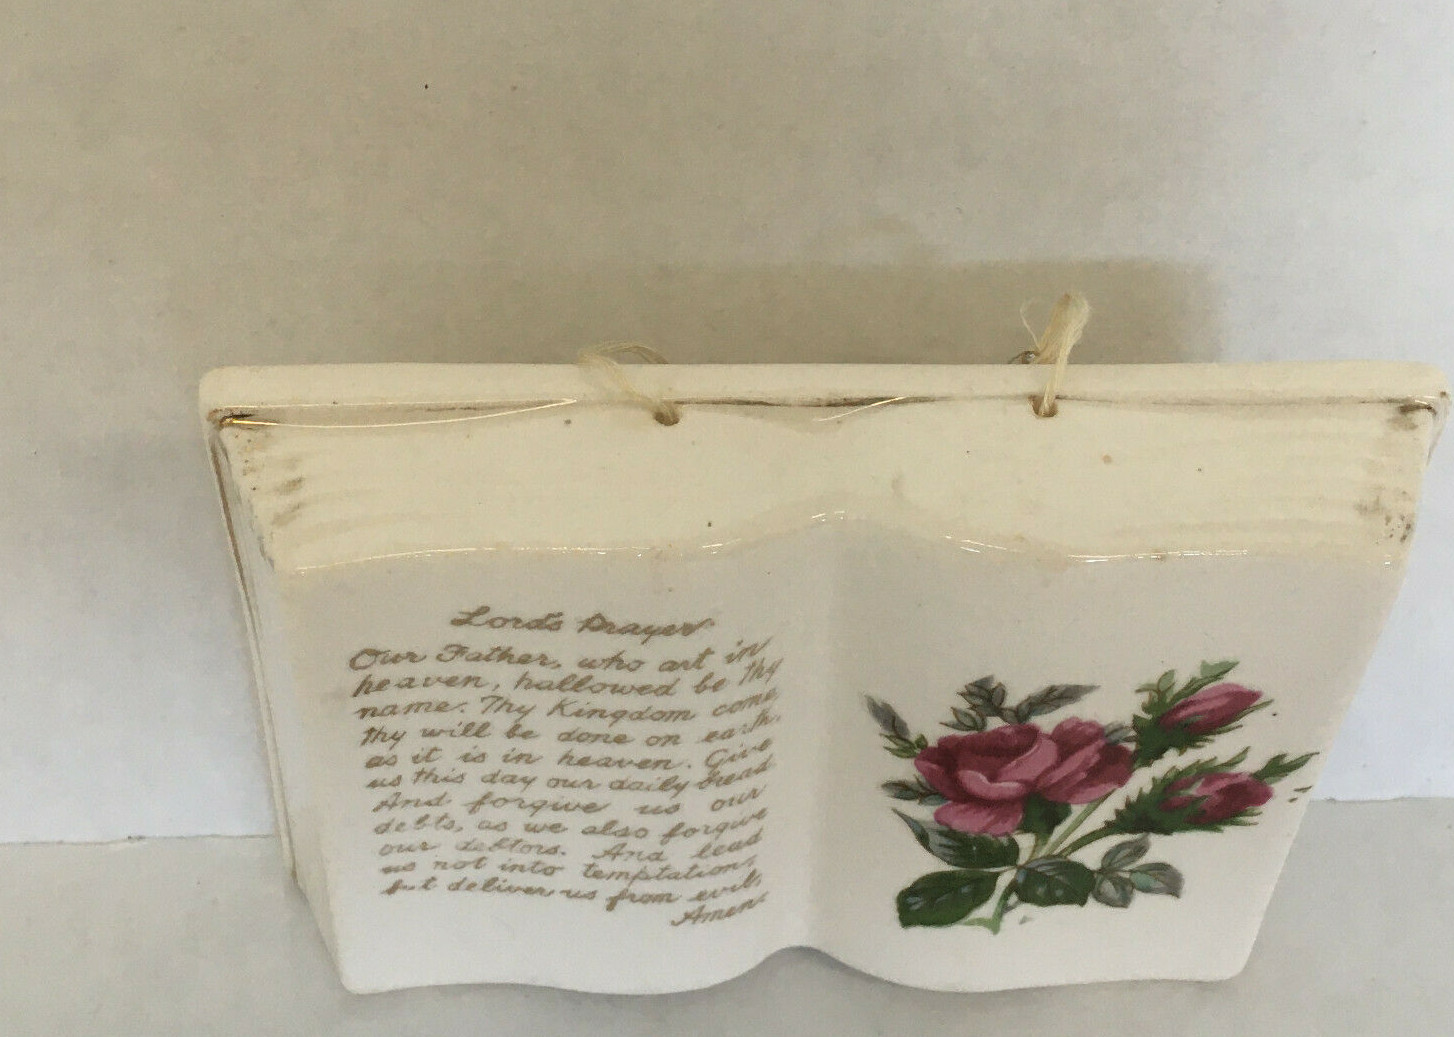 Lord's Prayer
Our Father, who art in
heaven, hallowed be thy
name. Thy Kingdom come,
thy will be done on earth,
as it is in heaven. Give
us this day our daily bread
And forgive us our
debts, as we also forgive
our debtors. And lead
us not into temptation,
but deliver us from evil,
Amen.